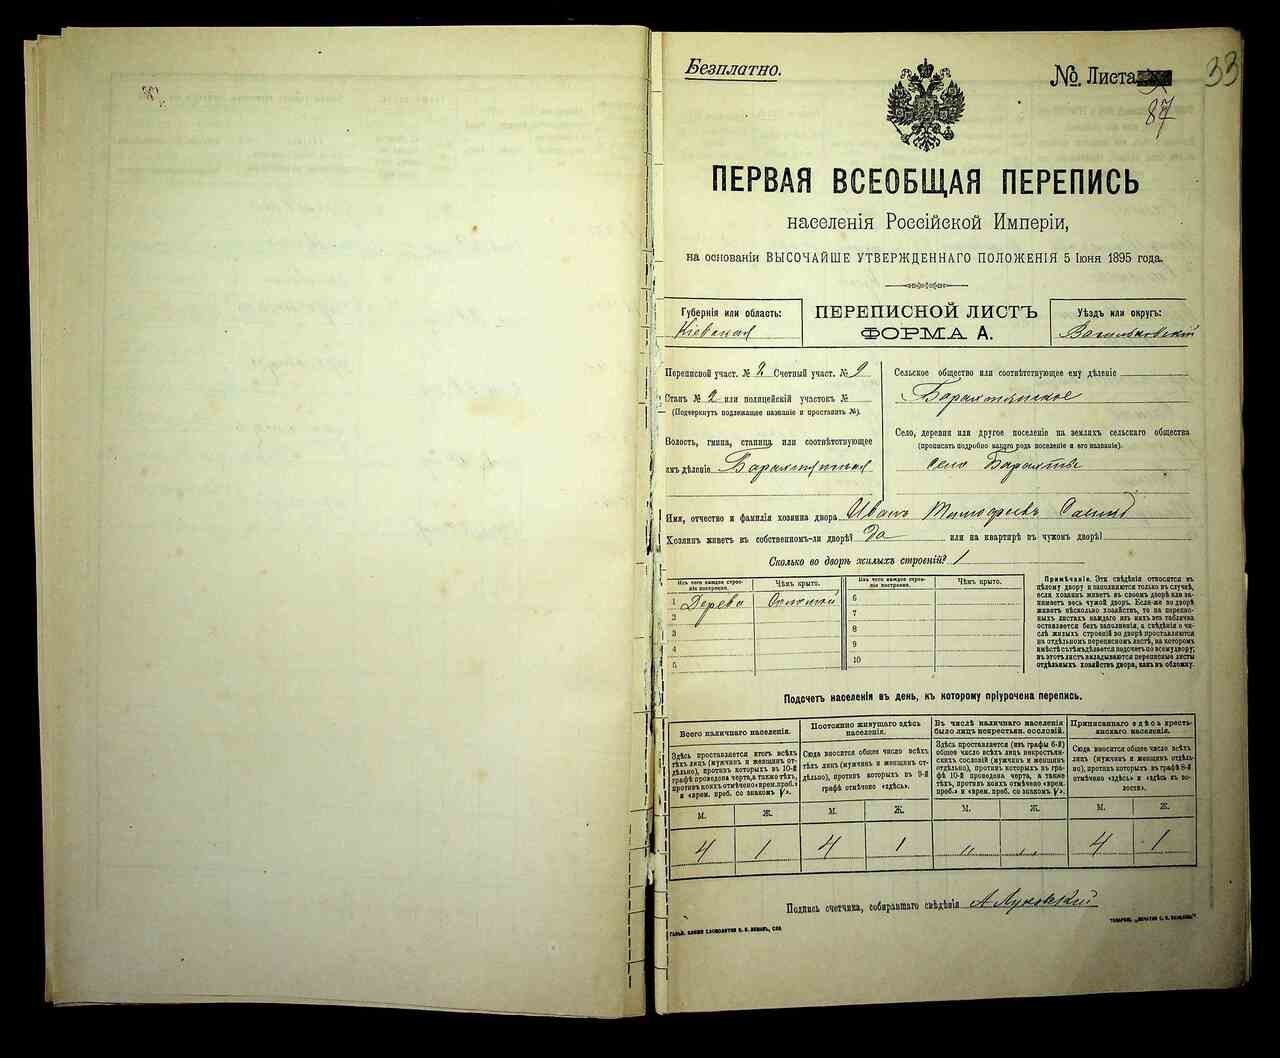 Безплатно.
№ Листа
33
87
ПЕРВАЯ ВСЕОБЩАЯ ПЕРЕПИСЬ
населенія Россійской Имперіи,
на основаніи ВЫСОЧАЙШЕ УТВЕРЖДЕННАГО ПОЛОЖЕНІЯ 5 Іюня 1895 года.
Губернія или область:
Кіевская
ПЕРЕПИСНОЙ ЛИСТЪ
ФОРМА А.
Уѣздъ или округъ:
Васильковскій
Переписной участ. № 2 Счетный участ. № 9
Станъ № 2 или полицейскій участокъ №
(Подчеркнуть подлежащее названіе и проставить №).
Волость, гмина, станица или соотвѣтствующее
имъ дѣленіе Барахтянская
Сельское общество или соотвѣтствующее ему дѣленіе
Барахтянское
Село, деревня или другое поселеніе на земляхъ сельскаго общества
(прописать подробно какого рода поселеніе и его названіе).
село Барахты
Имя, отчество и фамилія хозяина двора Иванъ Тимофеевъ
Хозяинъ живетъ въ собственномъ-ли дворѣ? Да или на квартирѣ въ чужомъ дворѣ?
Сколько во дворѣ жилыхъ строеній? 1
Изъ чего каждое строеніе построено.
Чѣмъ крыто.
Изъ чего каждое строеніе построено.
Чѣмъ крыто.
1 Дерева Соломой
2
3
4
5
6
7
8
9
10
Примѣчаніе. Эти свѣдѣнія относятся къ
цѣлому двору и заполняются только въ случаѣ,
если хозяинъ живетъ въ своемъ дворѣ или занимаетъ
весь чужой дворъ. Если-же во дворѣ
живетъ нѣсколько хозяйствъ, то на переписныхъ
листахъ каждаго изъ нихъ эта табличка
оставляется безъ заполненія, а свѣдѣнія о числѣ
жилыхъ строеній во дворѣ проставляются
на отдѣльномъ переписномъ листѣ, на которомъ
вмѣстѣ съ тѣмъ дѣлается подсчетъ по всему двору;
въ этотъ листъ вкладываются переписные листы
отдѣльныхъ хозяйствъ двора, какъ въ обложку.
Подсчетъ населенія въ день, къ которому пріурочена перепись.
Всего наличнаго населенія.
Здѣсь проставляется итогъ всѣхъ
тѣхъ лицъ (мужчинъ и женщинъ отдѣльно),
противъ которыхъ въ 10-й
графѣ проведена черта, а также тѣхъ,
противъ коихъ отмѣчено «врем. преб.»
и «врем. преб. со знакомъ V».
Постоянно живущаго здѣсь
населенія.
Сюда вносится общее число всѣхъ
тѣхъ лицъ (мужчинъ и женщинъ отдѣльно),
противъ которыхъ въ 9-й
графѣ отмѣчено «здѣсь».
Въ числѣ наличнаго населенія
было лицъ некрестьян. сословій.
Здѣсь проставляется (изъ графы 6-й)
общее число всѣхъ лицъ некрестьянскихъ
сословій (мужчинъ и женщинъ
отдѣльно), противъ которыхъ въ графѣ
10-й проведена черта, а также
тѣхъ, противъ коихъ отмѣчено «врем.
преб.» и «врем. преб. со знакомъ V».
Приписаннаго здѣсь крестьянскаго
населенія.
Сюда вносится общее число всѣхъ
лицъ (мужчинъ и женщинъ отдѣльно),
противъ которыхъ въ графѣ 8-й
отмѣчено «здѣсь» и «здѣсь въ волости».
М. Ж. М. Ж. М. Ж. М. Ж.
4 1 4 1 „ „ 4 1
Подпись счетчика, собиравшаго свѣдѣнія А Луковскій